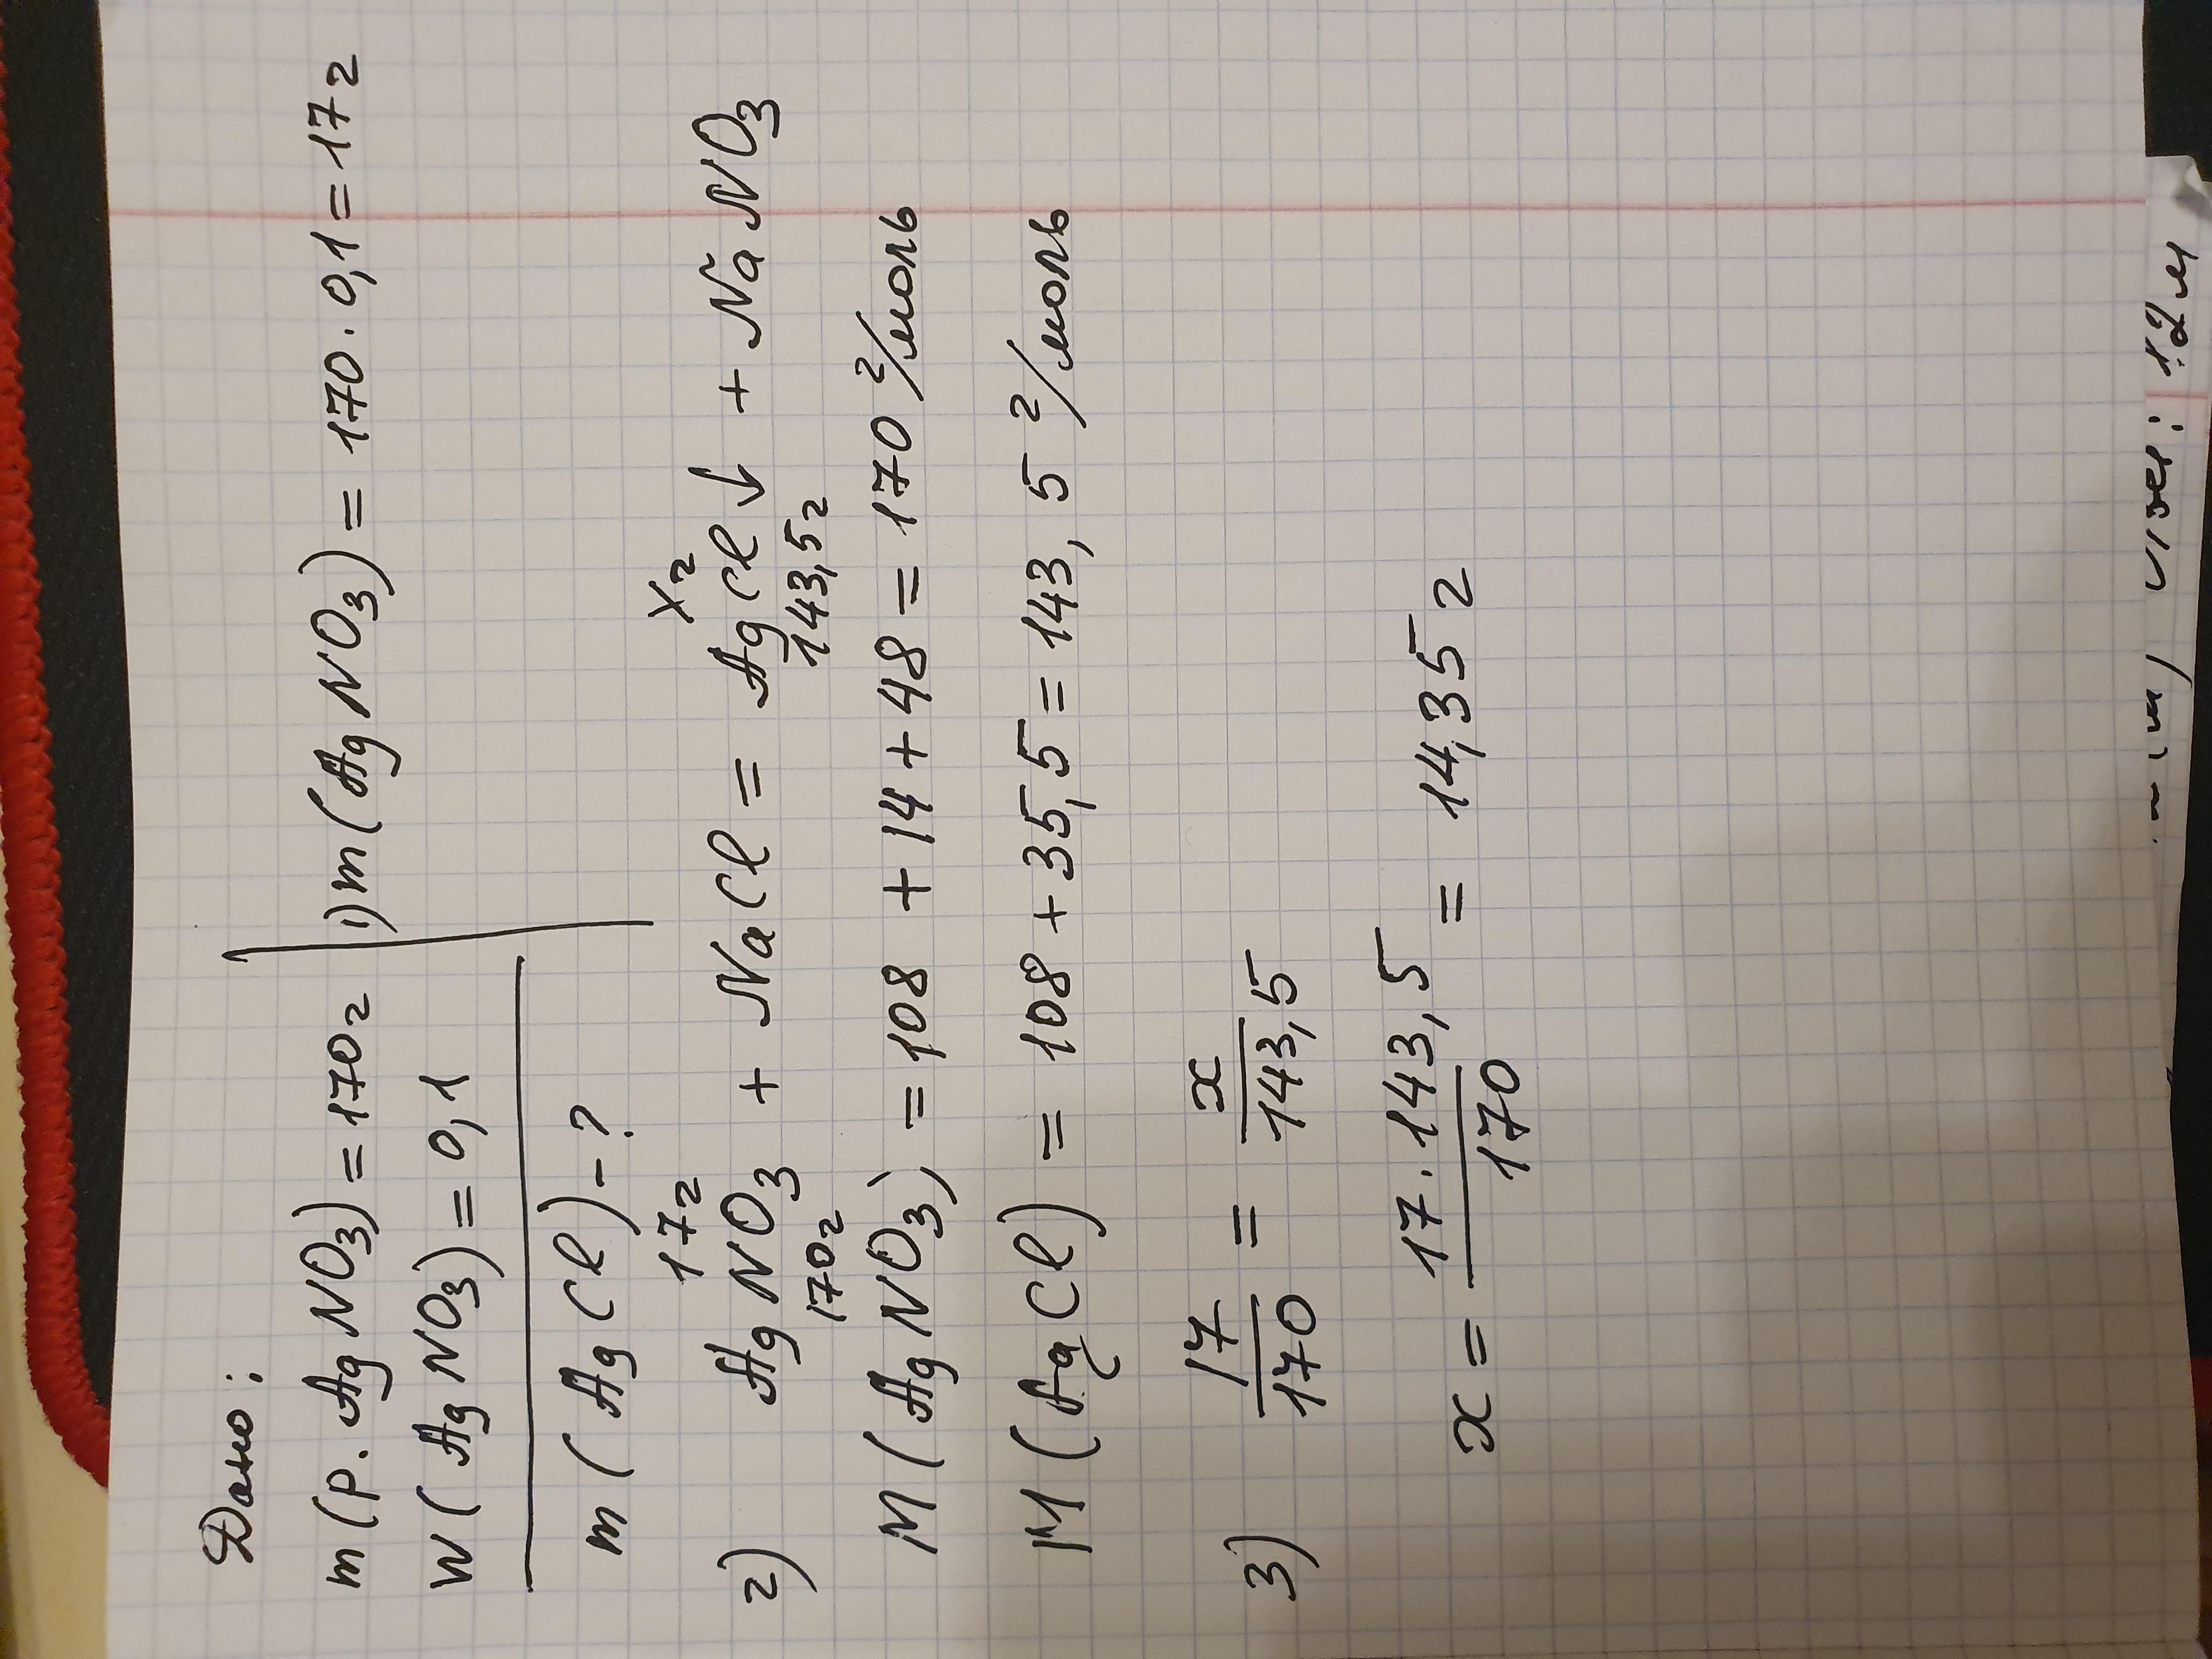 Дано:
m(р. AgNO3) = 170г
W(AgNO3) = 0,1
m(AgCl) - ?
1) m(AgNO3) = 170 · 0,1 = 17г
17г Xг
2) AgNO3 + NaCl = AgCl↓ + NaNO3
170г 143,5г
M(AgNO3) = 108 + 14 + 48 = 170 г/моль
M(AgCl) = 108 + 35,5 = 143,5 г/моль
3) 17/170 = x/143,5
x = 17 · 143,5/170 = 14,35 г